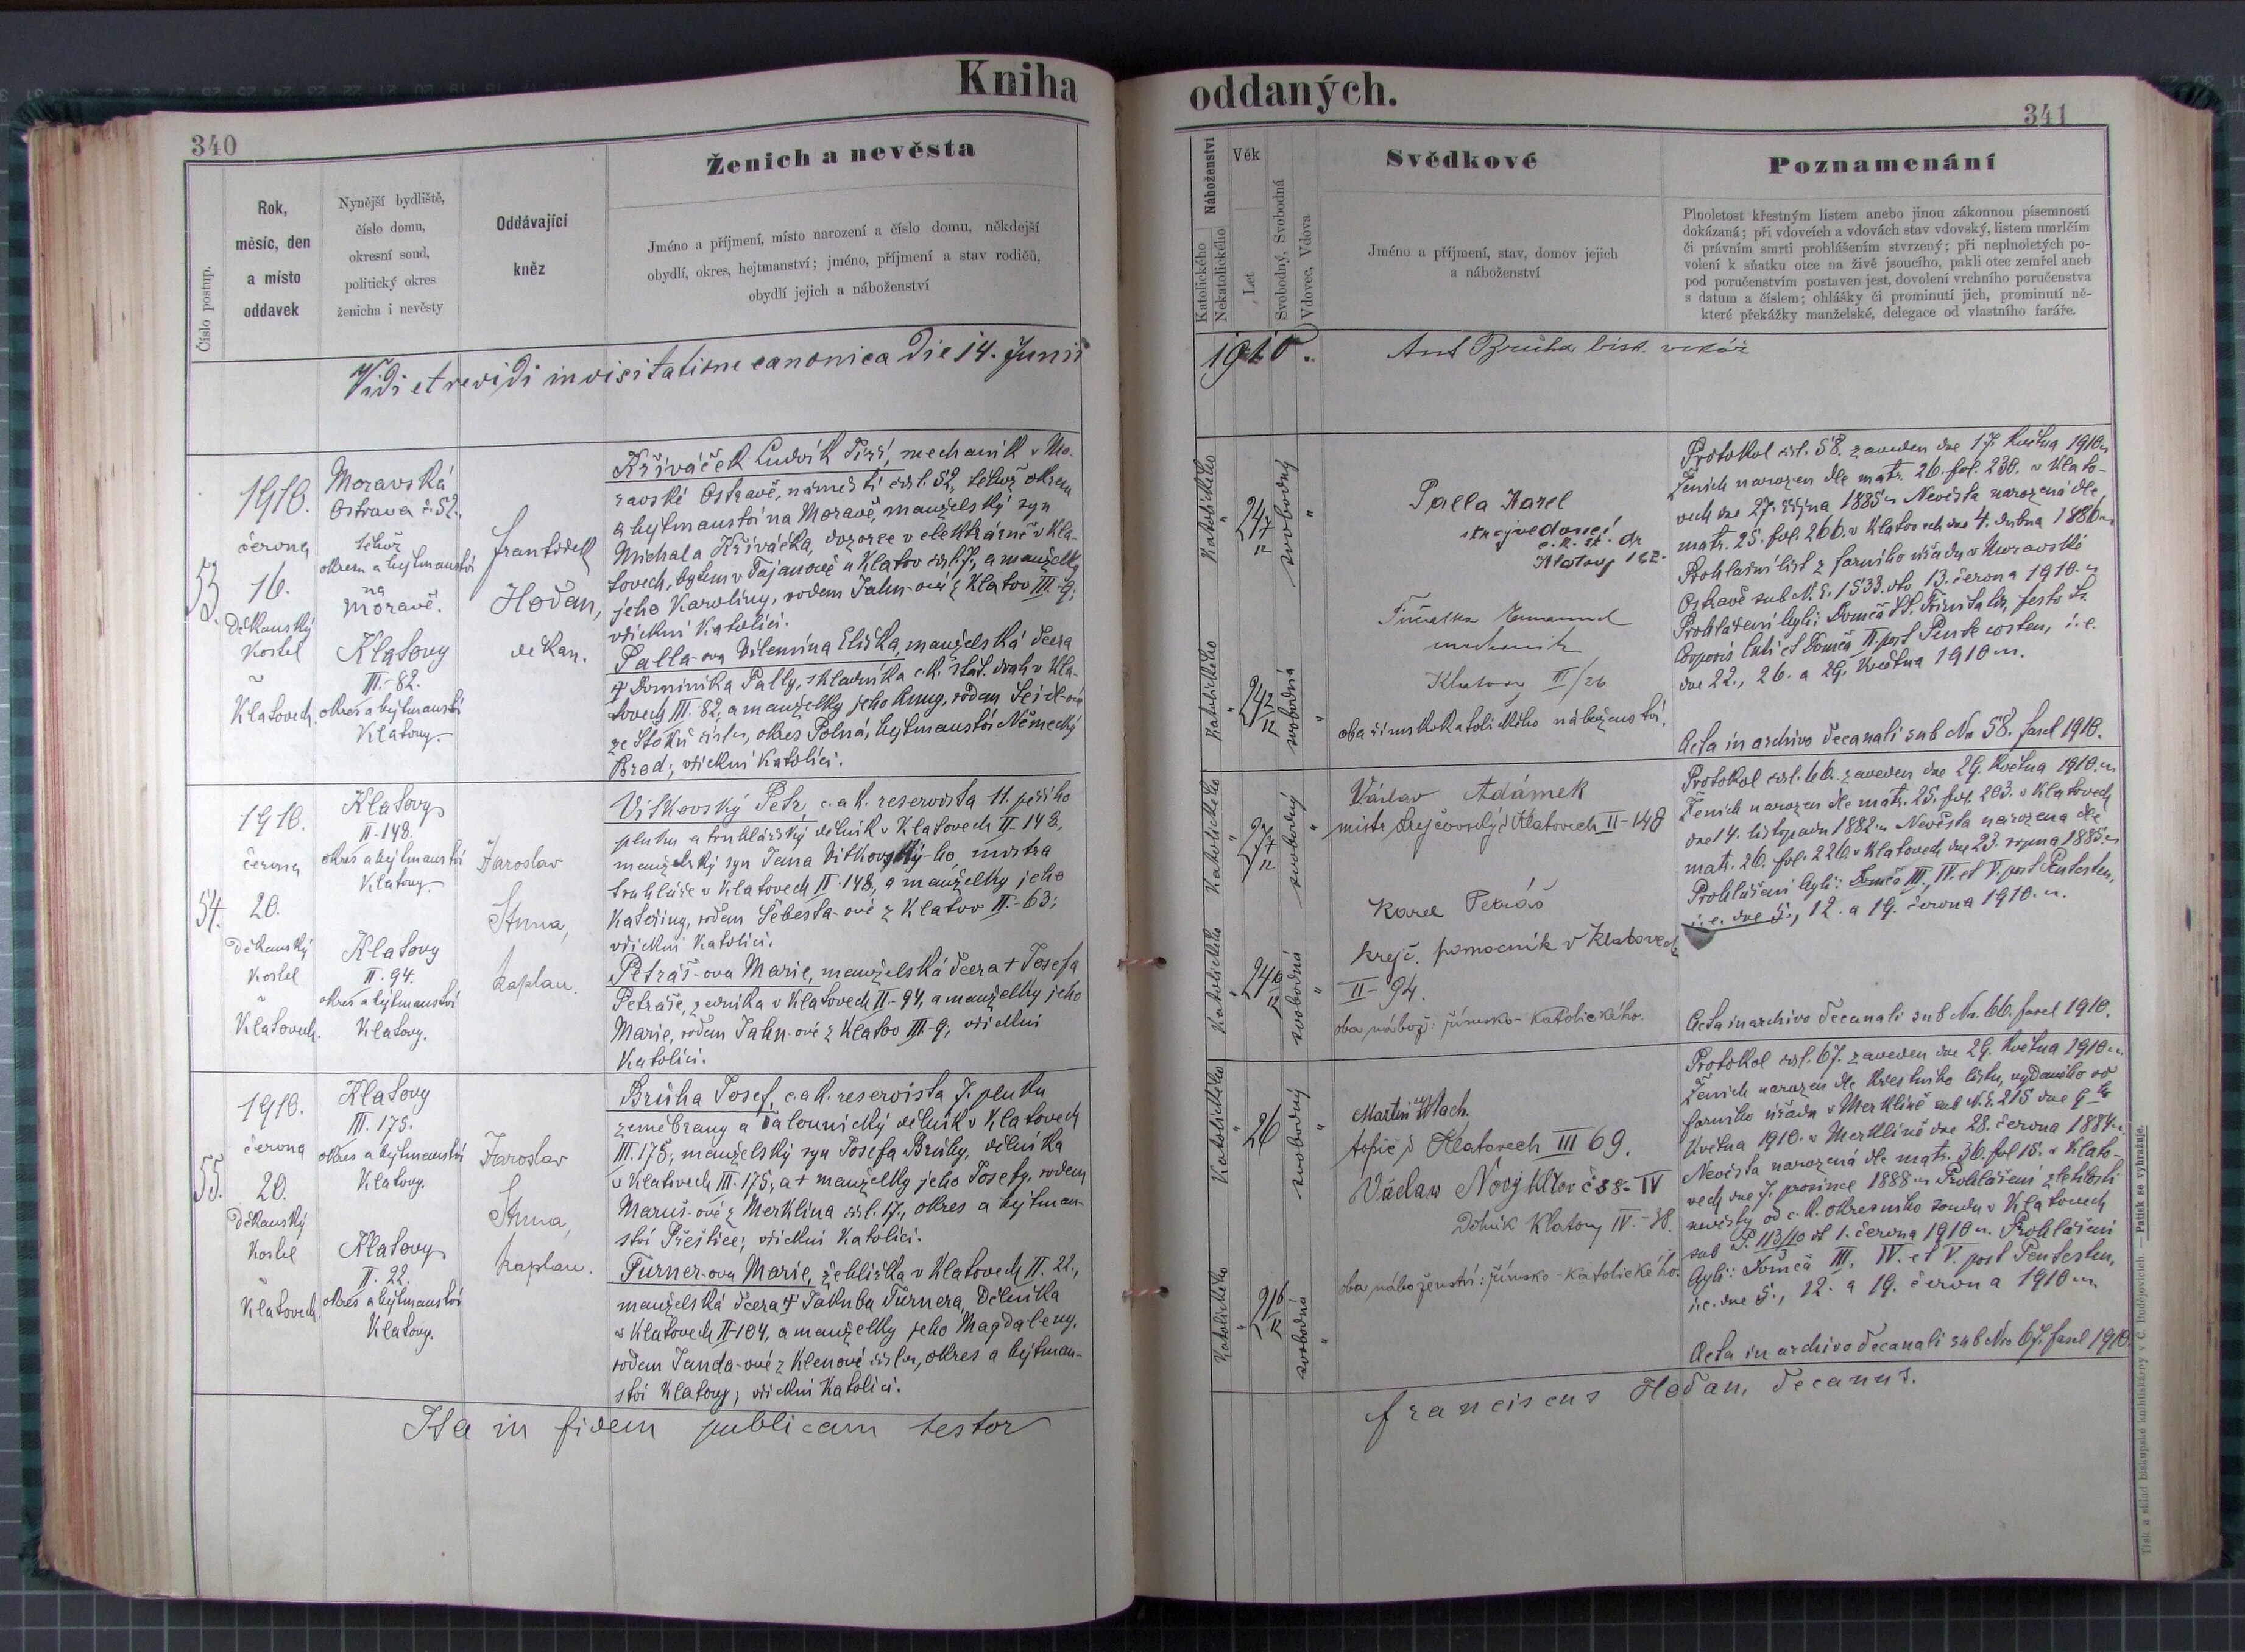 Kniha
340
Číslo postup.
Rok,
měsíc, den
a místo
oddavek
Nynější bydliště,
číslo domu,
okresní soud,
politický okres
ženicha i nevěsty
Oddávající
kněz
Ženich a nevěsta
Jméno a příjmení, místo narození a číslo domu, někdejší
obydlí, okres, hejtmanství; jméno, příjmení a stav rodičů,
obydlí jejich a náboženství
Vidi et revidi in visitatione canonica die 14. Junii
53.
1910.
června
16.
Děkanský
kostel
v
Klatovech.
Moravská
Ostrava č. 52.,
téhož
okresu a hejtmanství
na
Moravě.
Klatovy
III.-82.
okres a hejtmanství
Klatovy.
František
Hoďan,
děkan.
Křiváček Ludvík Jiří, mechanik v Mo-
ravské Ostravě, náměstí čísl. 52, téhož okresu
a hejtmanství na Moravě, manželský syn
Michala Křiváčka, dozorce v elektrárně v Kla-
tovech, bytem v Tajanově u Klatov čísl. 7., a manželky
jeho Karoliny, rodem Jahn-ové z Klatov III.-9;
všickni katolíci.
Palla-ova Vilemína Eliška, manželská dcera
† Dominika Pally, skladníka c.k. stát. drah v Kla-
tovech III.-82, a manželky jeho Anny, rodem Seidl-ové
ze Štoků, okres Polná, hejtmanství Německý
Brod; všickni katolíci.
54.
1910.
června
20.
Děkanský
kostel
v
Klatovech.
Klatovy
II-148.
okres a hejtmanství
Klatovy.
Klatovy
II.-94.
okres a hejtmanství
Klatovy.
Jaroslav
Stuna,
kaplan.
Vítkovský Petr, c. a k. reservista 11. pěšího
pluku a truhlářský dělník v Klatovech II-148,
manželský syn Jana Vítkovský-ho, mistra
truhláře v Klatovech II.-148, a manželky jeho
Kateřiny, rodem Šebesta-ové z Klatov II.-63;
všickni katolíci.
Petráš-ova Marie, manželská dcera † Josefa
Petráše, zedníka v Klatovech II.-94, a manželky jeho
Marie, rodem Jahn-ové z Klatov III-9; všickni
katolíci.
55.
1910.
června
20.
Děkanský
kostel
v
Klatovech.
Klatovy
III. 175.
okres a hejtmanství
Klatovy.
Klatovy
II. 22.
okres a hejtmanství
Klatovy.
Jaroslav
Stuna,
kaplan.
Brůha Josef, c. a k. reservista 7. pluku
zeměbrany a čalounický dělník v Klatovech
III. 175; manželský syn Josefa Brůhy, dělníka
v Klatovech III. 175, a † manželky jeho Josefy, rodem
Maruš-ové z Merklína čísl. 17., okres a hejtman-
ství Přeštice; všickni katolíci.
Turner-ova Marie, žehlířka v Klatovech II. 22.,
manželská dcera † Jakuba Turnera, dělníka
v Klatovech II-104, a manželky jeho Magdaleny,
rodem Janda-ové z Klenové, okres a hejtman-
ství Klatovy; všickni katolíci.
Ita in fidem publicam testor
oddaných.
341
Náboženství
Katolického
Nekatolického
Věk
Let
Svobodný, Svobodná
Vdovec, Vdova
Svědkové
Jméno a příjmení, stav, domov jejich
a náboženství
Poznamenání
Plnoletost křestným listem anebo jinou zákonnou písemností
dokázaná; při vdovcích a vdovách stav vdovský, listem umrlčím
či právním smrti prohlášením stvrzený; při neplnoletých po-
volení k sňatku otce na živě jsoucího, pakli otec zemřel aneb
pod poručenstvím postaven jest, dovolení vrchního poručenstva
s datum a číslem; ohlášky či prominutí jich, prominutí ně-
které překážky manželské, delegace od vlastního faráře.
1910. Ant Brůha bisk. vikář
Katolického
24 7/12
svobodný
Katolického
24 2/12
svobodná
Palla Karel
c. k. st. dr
Klatovy 162.
Klatovy III/26
oba římskokatolického náboženství.
Protokol čísl. 58. zaveden dne 17. května 1910.
Ženich narozen dle matr. 26. fol. 230. v Klato-
vech dne 27. října 1885. Nevěsta narozená dle
matr. 25. fol. 266. v Klatovech dne 4. dubna 1886.
Prohlašní list z farního úřadu v Moravské
Ostravě sub N. E. 1533. dto 13. června 1910.
Prohlášeni byli: Domca SS. Trinitatis, festo SS.
Corporis Christi et Domca II. post Pentecosten, i. e.
dne 22., 26. a 29. května 1910.
Acta in archivo decanali sub No 58. fascl 1910.
Katolického
27 7/12
svobodný
Katolického
24 10/12
svobodná
Václav Adámek
mistr krejčovský v Klatovech II-148
Karel Petráš
krejč. pomocník v Klatovech
II-94.
oba nábož: římsko-katolického.
Protokol čísl. 66. zaveden dne 29. května 1910.
Ženich narozen dle matr. 25. fol. 203. v Klatovech
dne 14. listopadu 1882. Nevěsta narozena dle
matr. 26. fol. 226. v Klatovech dne 23. srpna 1885.
Prohlášeni byli: Domca III., IV. et V. post Pentecosten,
i. e. dne 5., 12. a 19. června 1910.
Acta in archivo decanali sub No. 66. fascl 1910.
Katolického
26
svobodný
Katolického
21 6/12
svobodná
Martin Wlach.
topič v Klatovech III 69.
Václav Nový Klatov č 38-IV
Dělník Klatovy IV.-38.
oba náboženství: římsko-katolického.
Protokol čísl. 67. zaveden dne 29. května 1910.
Ženich narozen dle křestního listu, vydaného od
farního úřadu v Merklíně sub N. E. 215 dne 9.
května 1910. v Merklíně dne 28. června 1884.
Nevěsta narozená dle matr. 36. fol 15. v Klato-
vech dne 7. prosince 1888. Prohlášení zletilosti
nevěsty od c. k. okresního soudu v Klatovech
sub P. 113/10 3 dt 1. června 1910. Prohlášeni
byli: Domca III., IV. et V. post Pentecosten,
i. e. dne 5., 12. a 19. června 1910.
Acta in archivo decanali sub No 67. fascl 1910.
Franciscus Hoďan, decanus.
Tisk a sklad biskupské knihtiskárny v Č. Budějovicích. — Patisk se vyhražuje.